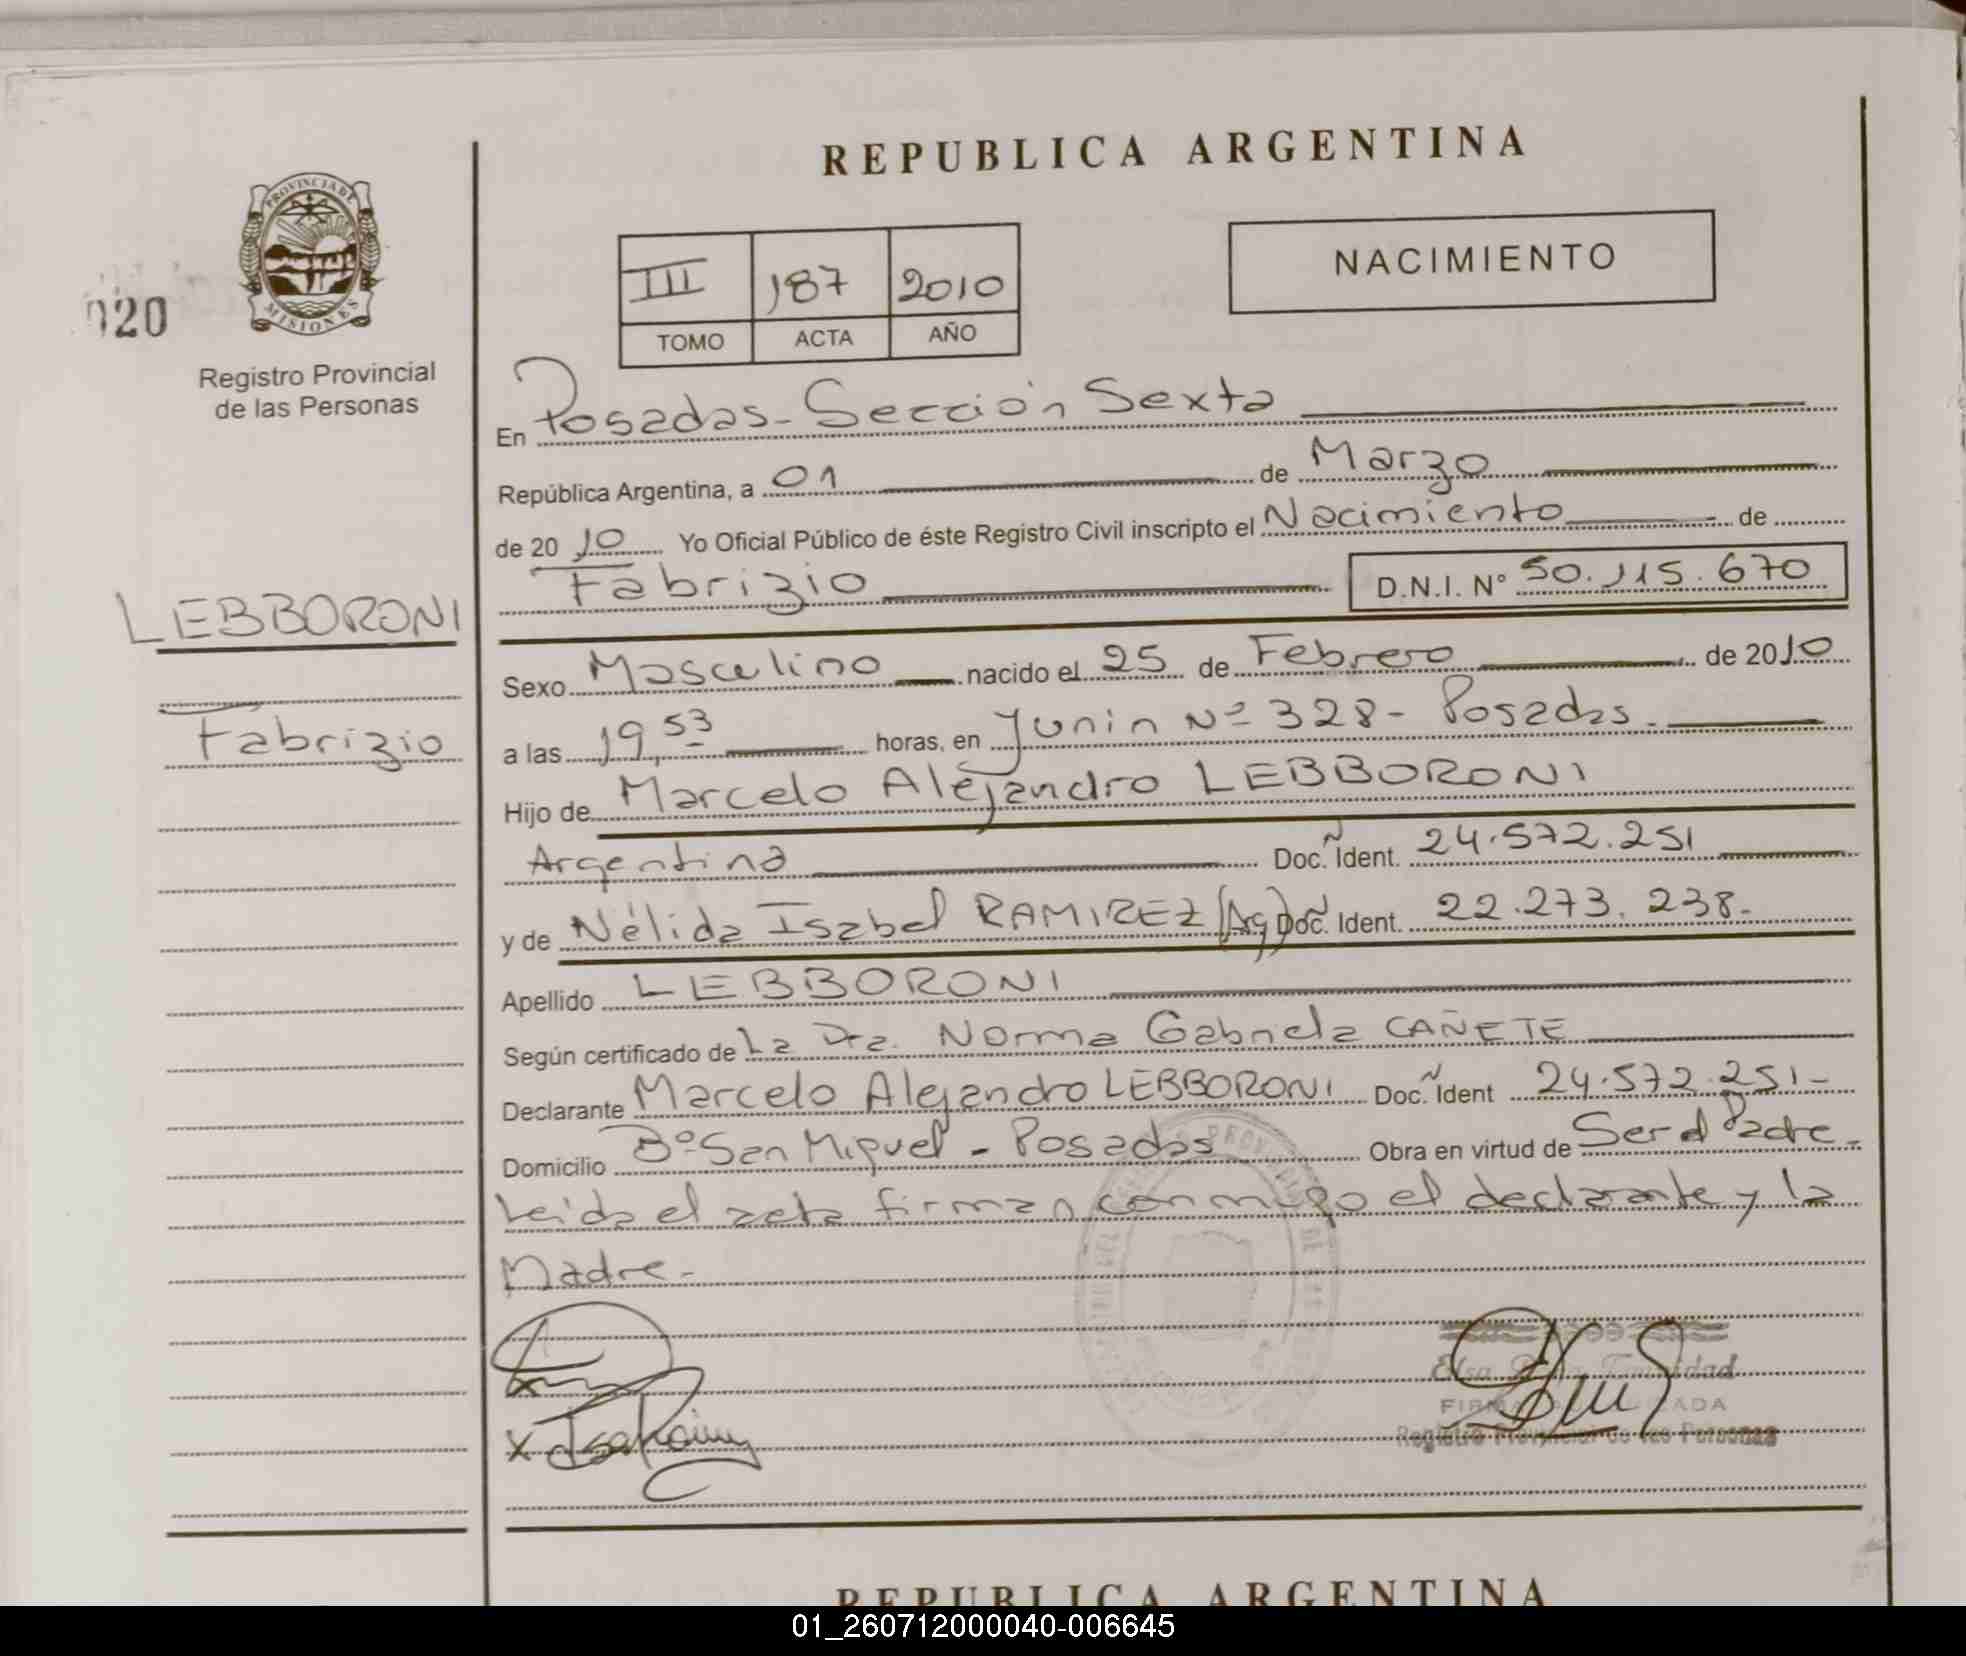 REPUBLICA ARGENTINA
PROVINCIA DE MISIONES
020
Registro Provincial
de las Personas
III 187 2010
TOMO ACTA AÑO
NACIMIENTO
En Posadas - Sección Sexta
República Argentina, a 01 de Marzo
de 2010 Yo Oficial Público de éste Registro Civil inscripto el Nacimiento de
Fabrizio D.N.I. N° 50.115.670
LEBBORONI
Fabrizio
Sexo Masculino nacido el 25 de Febrero de 2010
a las 19,53 horas, en Junin Nº 328 - Posadas.
Hijo de Marcelo Alejandro LEBBORONI
Argentina Doc. Ident. 24.572.251
y de Nélida Isabel RAMIREZ (Arg) Doc. Ident. 22.273.238-
Apellido LEBBORONI
Según certificado de La Dra. Norma Gabriela CAÑETE
Declarante Marcelo Alejandro LEBBORONI Doc. Ident 24.572.251-
Domicilio Bº San Miguel - Posadas Obra en virtud de Ser el Padre -
Leida el acta firman conmigo el declarante y la
Madre -
Elsa
Registro Provincial de las Personas
REPUBLICA ARGENTINA
01_260712000040-006645